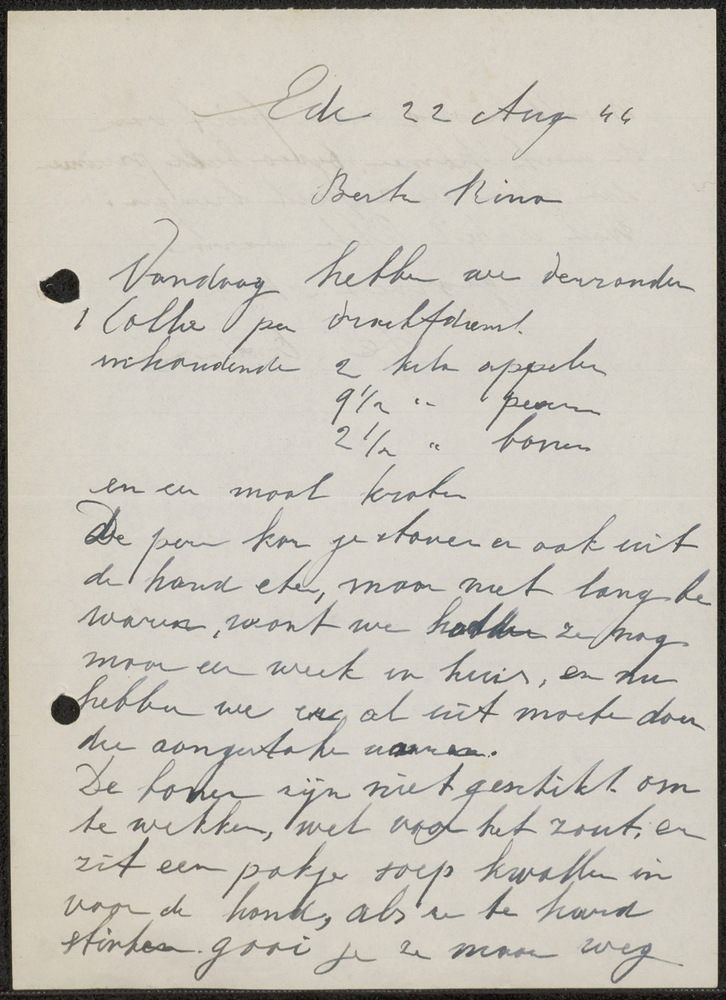 Ede 22 Aug 44
Beste Rino
Vandaag hebben we verzonden
1 Collie per vrachtdienst.
inhoudende 2 kilo appelen
9 1/2 " peren
2 1/2 " bonen
en een maal kroten
De peren kan je stoven en ook uit
de hand eten, maar niet lang be
waren, want we hadden ze nog
maar een week in huis, en nu
hebben we er al uit moeten doen
die aangestoken waren.
De bonen zijn niet geschikt om
te wekken, wel voor het zout, er
zit een pakje soep kwallen in
voor de hond, als ze te hard
stinken gooi je ze maar weg